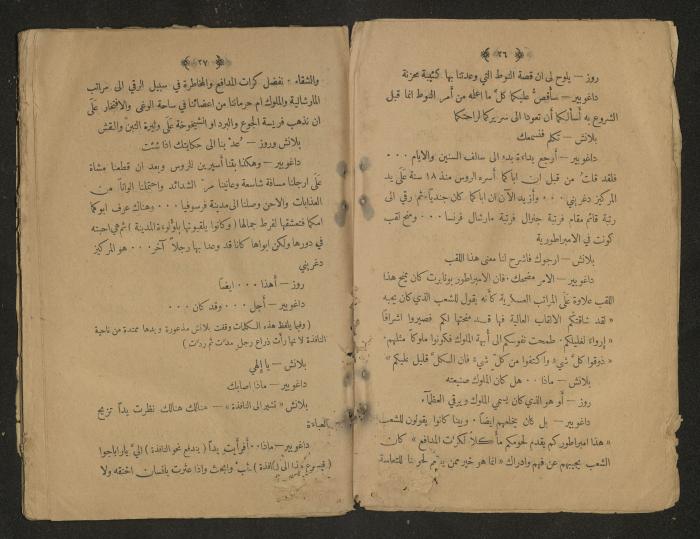 ﴿ ٢٦ ﴾
روز — يلوح لي ان قصة النوط التي وعدتنا بها كئيبة محزنة
داغوبير — سأقصُّ عليكما كلَّ ما اعمله من أمر النوط انما قبل
الشروع به أسألكما أن تعودا الى سريركما لراحتكما
بلانش — تكلم فنسمعك
داغوبير — أرجع بداءة بدء الى سالف السنين والايام ٠٠٠
فلقد قلت من قبل ان اباكما أسره الروس منذ ١٨ سنة على يد
المركيز دغريني ٠٠٠ وأزيد الآن ان اباكما كان جندياً ثم رقي الى
رتبة قائم مقام فرتبة جنرال فرتبة مارشال فرنسا ٠٠٠ ومنح لقب
كونت في الامبراطورية
بلانش — ارجوك فاشرح لنا معنى هذا اللقب
داغوبير — الامر مضحك ٠ فان الامبراطور بونابرت كان يمنح هذا
اللقب علاوة على المراتب العسكرية كأنه يقول للشعب الذي كان يحبه
« لقد شاقتكم الالقاب العالية فها قد منحتها لكم فصيروا اشرافاً
« إرواء لغليلكم ٠ طمحت نفوسكم الى أبهة الملوك فكونوا ملوكاً مثلهم
« ذوقوا كلَّ شيء واكتفوا من كلّ شيء فان الكلَّ قليل عليكم »
بلانش — ماذا ٠٠ هل كان الملوك صنيعته
روز — أو هو الذي كان يسمي الملوك ويرقي العظماء
داغوبير — بل كان يخلعهم ايضاً ٠ وبينا كانوا يقولون للشعب
« هذا امبراطوركم يقدم لحومكم مأكلاً لكرات المدافع » كان
الشعب يجيبهم عن فهم وادراك « انما هو خير ممن يقدّم لحومنا للتعاسة
﴿ ٢٧ ﴾
والشقاء ٠ نفضل كرات المدافع والمخاطرة في سبيل الرقي الى مراتب
المارشالية والملوك ام حرماننا من اعضائنا في ساحة الوغى والافتخار على
ان نذهب فريسة الجوع والبرد او الشيخوخة على وثيرة التبن والقش
بلانش وروز — عُدْ بنا الى حكايتك اذا شئت
داغوبير — وهكذا بقنا أسيرين للروس وبعد ان قطعنا مشاة
على ارجلنا مسافة شاسعة وعانينا مرّ الشدائد واحتملنا الواناً من
العذابات والاحن وصلنا الى مدينة فرسوفيا ٠٠٠ وهناك عرف ابوكما
امكما فتعشقها لفرط جمالها ( وكانوا يلقبونها بلؤلؤة المدينة ) ثم هي احبته
في دورها ولكن ابواها كانا قد وعدا بها رجلاً آخر ٠٠٠ هو المركيز
دغريني
روز — أهذا ٠٠٠ ايضاً
داغوبير — أجل ٠٠٠ وقد كان ٠٠٠
( وفيما يلفظ هذه الكلمات وقفت بلانش مذعورة ويدها ممتدة من ناحية
النافذة لانها رأت ذراع رجل مدت ثم ردت )
بلانش — يا إلهي
داغوبير — ماذا اصابك
بلانش « تشير الى النافذة » — هنالك هنالك نظرت يداً تزيح
العباءة
داغوبير — ماذا ٠٠ أفرأيت يداً ( يندفع نحو النافذة ) اليَّ ياراباجوا
الى النافذة ) ثب وابحث واذا عثرت بانسان اخنقه ولا